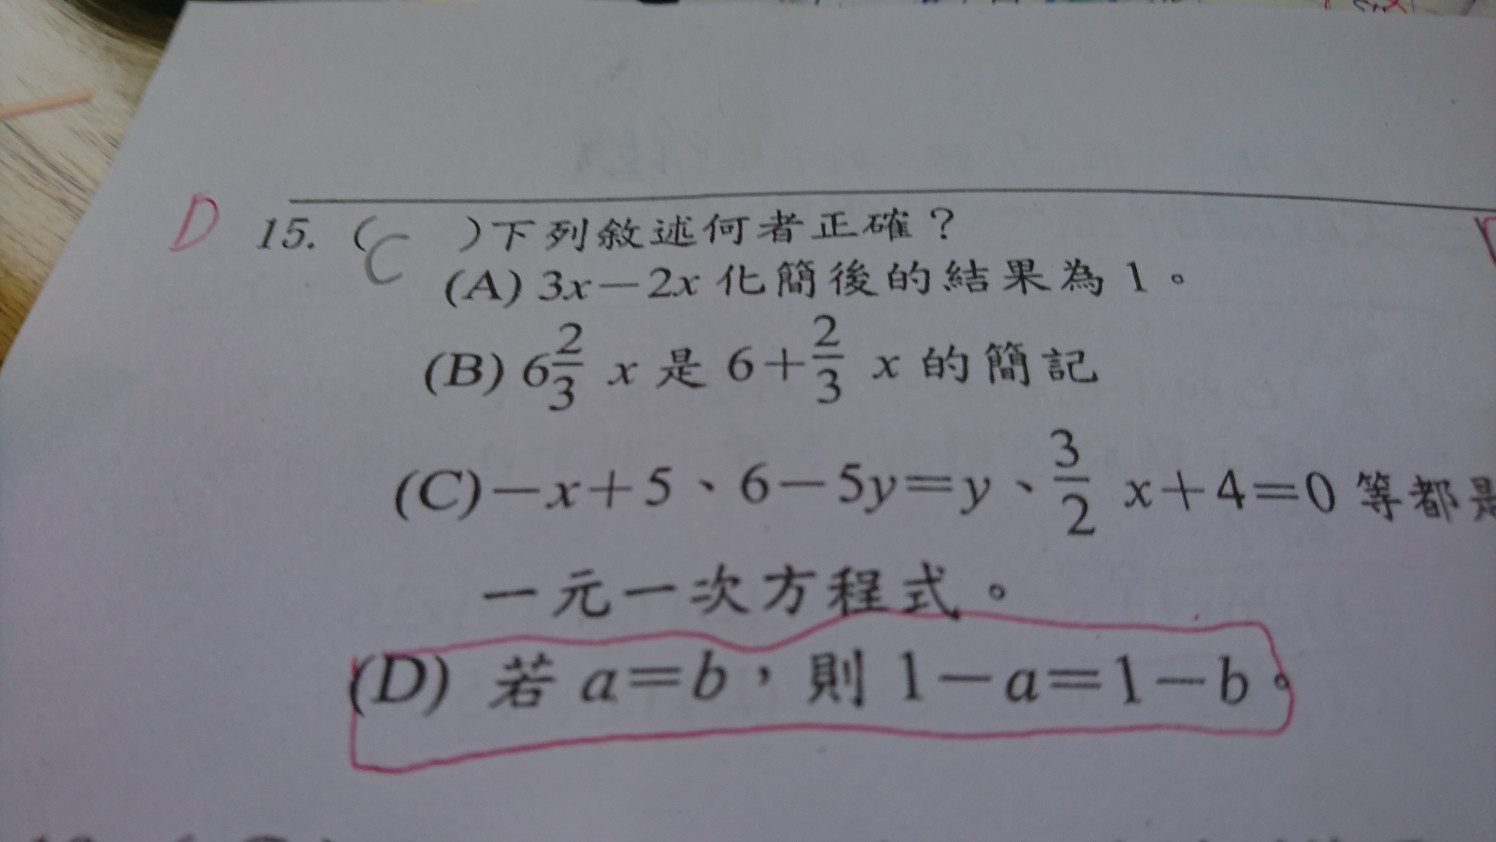 D 15. ( C )下列敘述何者正確？
(A) 3x－2x 化簡後的結果為 1。
(B) 6 2/3 x 是 6＋2/3 x 的簡記
(C)－x＋5、6－5y＝y、3/2 x＋4＝0 等都是
一元一次方程式。
(D) 若 a＝b，則 1－a＝1－b。